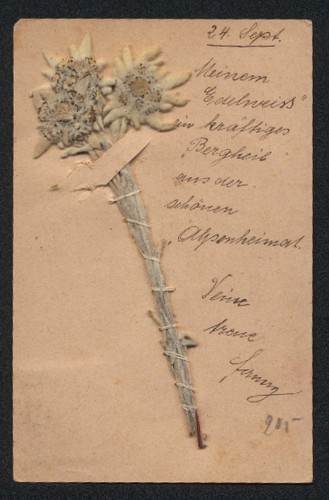 24. Sept.
Meinem
„Edelweiss"
ein kräftiges
Bergheil
aus der
schönen
Alpenheimat.
Deine
treue
Fanny